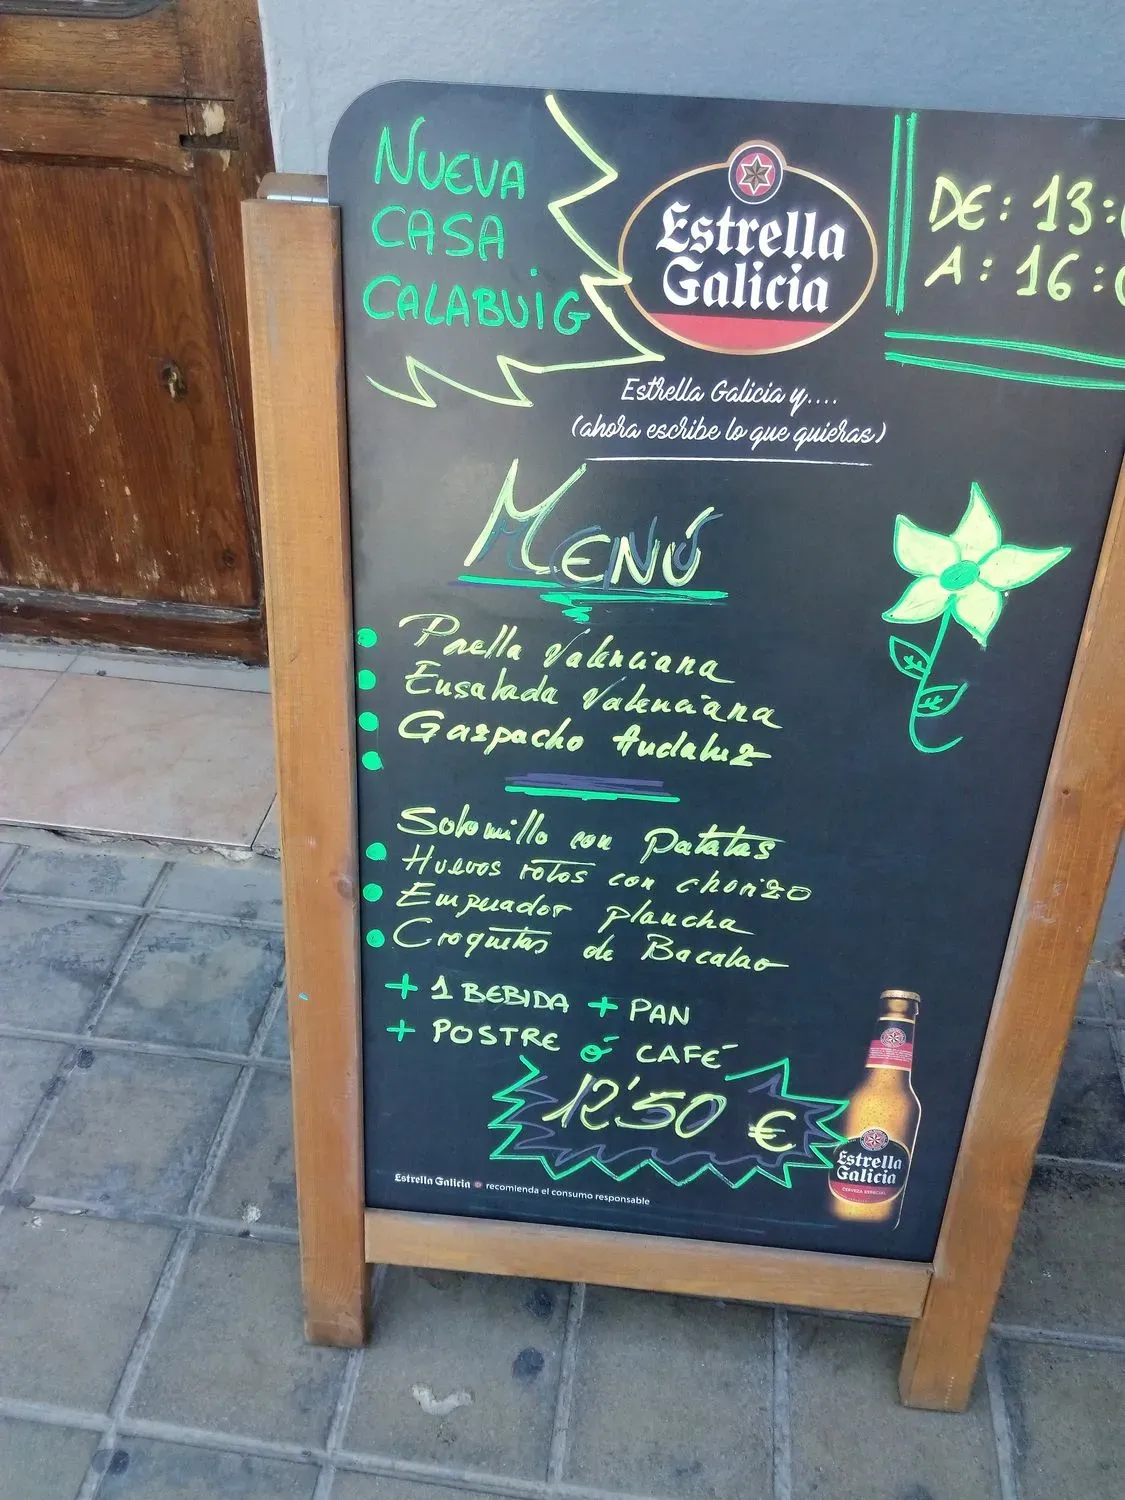 NUEVA
CASA
CALABUIG
Estrella
Galicia
DE: 13:
A: 16:
Estrella Galicia y....
(ahora escribe lo que quieras)
MENÚ
Paella Valenciana
Ensalada Valenciana
Gazpacho Andaluz
Solomillo con patatas
Huevos rotos con chorizo
Emperador plancha
Croquetas de Bacalao
+ 1 BEBIDA + PAN
+ POSTRE ó CAFÉ
12'50 €
Estrella
Galicia
CERVEZA ESPECIAL
Estrella Galicia recomienda el consumo responsable